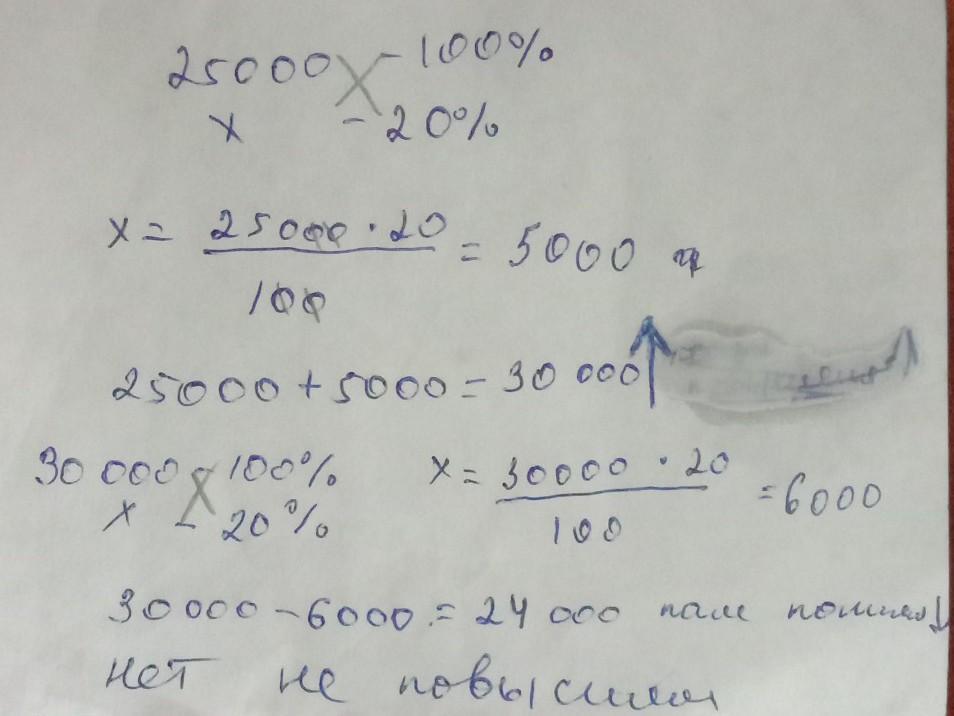 25000 - 100%
x - 20%
x = 25000 · 20 / 100 = 5000
25000 + 5000 = 30 000
30 000 - 100%
x - 20%
x = 30000 · 20 / 100 = 6000
30000 - 6000 = 24 000
нет не повысилась